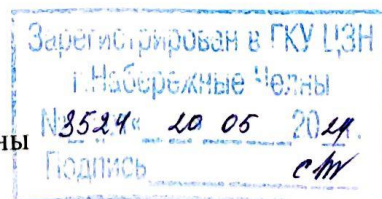 Зарегистрирован в ГКУ ЦЗН
г.Набережные Челны
ны
№ 3524 « 20 05 2024.
Подпись